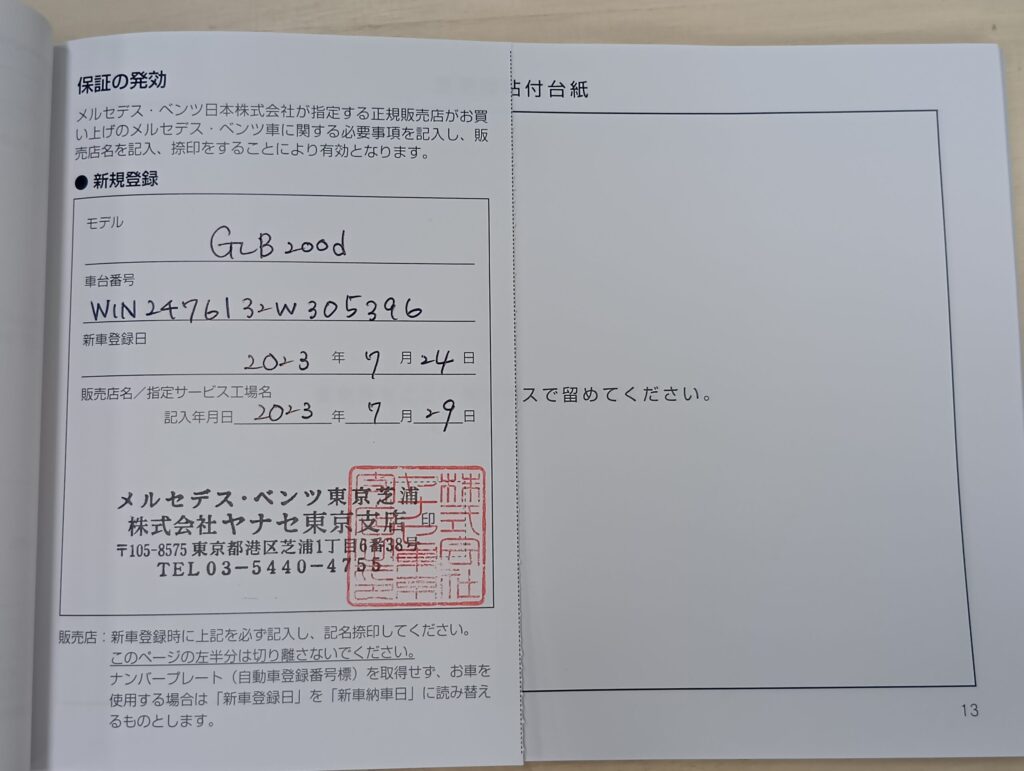 保証の発効
メルセデス・ベンツ日本株式会社が指定する正規販売店がお買
い上げのメルセデス・ベンツ車に関する必要事項を記入し、販
売店名を記入、捺印をすることにより有効となります。
● 新規登録
モデル
GLB 200d
車台番号
W1N2476132W305396
新車登録日
2023 年 7 月 24 日
販売店名／指定サービス工場名
記入年月日 2023 年 7 月 29 日
メルセデス・ベンツ東京芝浦
株式会社ヤナセ東京支店 印
〒105-8575 東京都港区芝浦1丁目6番38号
TEL 03-5440-4755
販売店：新車登録時に上記を必ず記入し、記名捺印してください。
このページの左半分は切り離さないでください。
ナンバープレート（自動車登録番号標）を取得せず、お車を
使用する場合は「新車登録日」を「新車納車日」に読み替え
るものとします。
付台紙
スで留めてください。
13